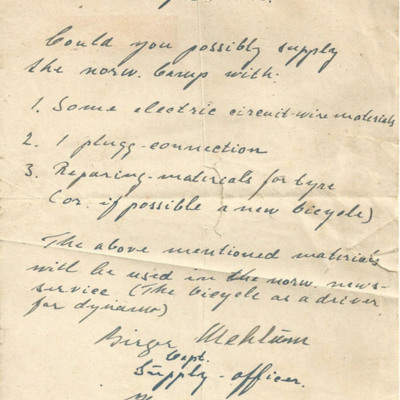 Could you possibly supply
the norw. Camp with:
1. Some electric circuit-wire materials
2. 1 plugg-connection
3. Reparing-materials for tyre
(or if possible a new bicycle)
The above mentioned materials
will be used in the norw. news-
service (The bicycle as a driver
for dynamo)
Birger
Capt.
Supply-officer.